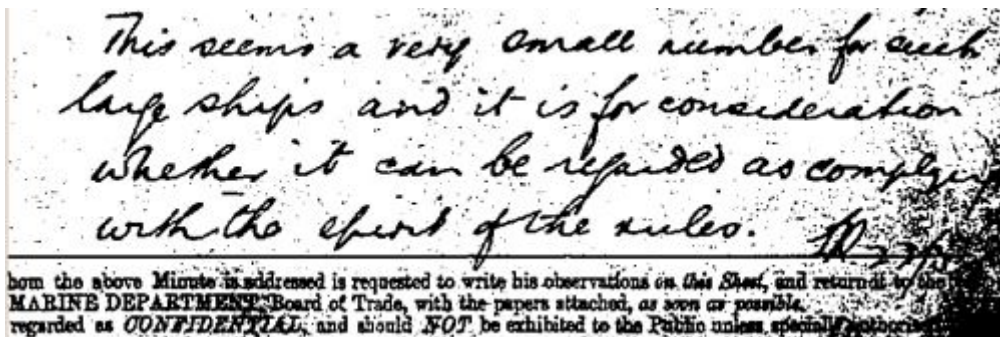 This seems a very small number for such
large ships and it is for consideration
whether it can be regarded as complying
with the spirit of the rules.
hom the above Minute is addressed is requested to write his observations on this Sheet, and return it to the
MARINE DEPARTMENT, Board of Trade, with the papers attached, as soon as possible.
regarded as CONFIDENTIAL, and should NOT be exhibited to the Public unless specially authorised